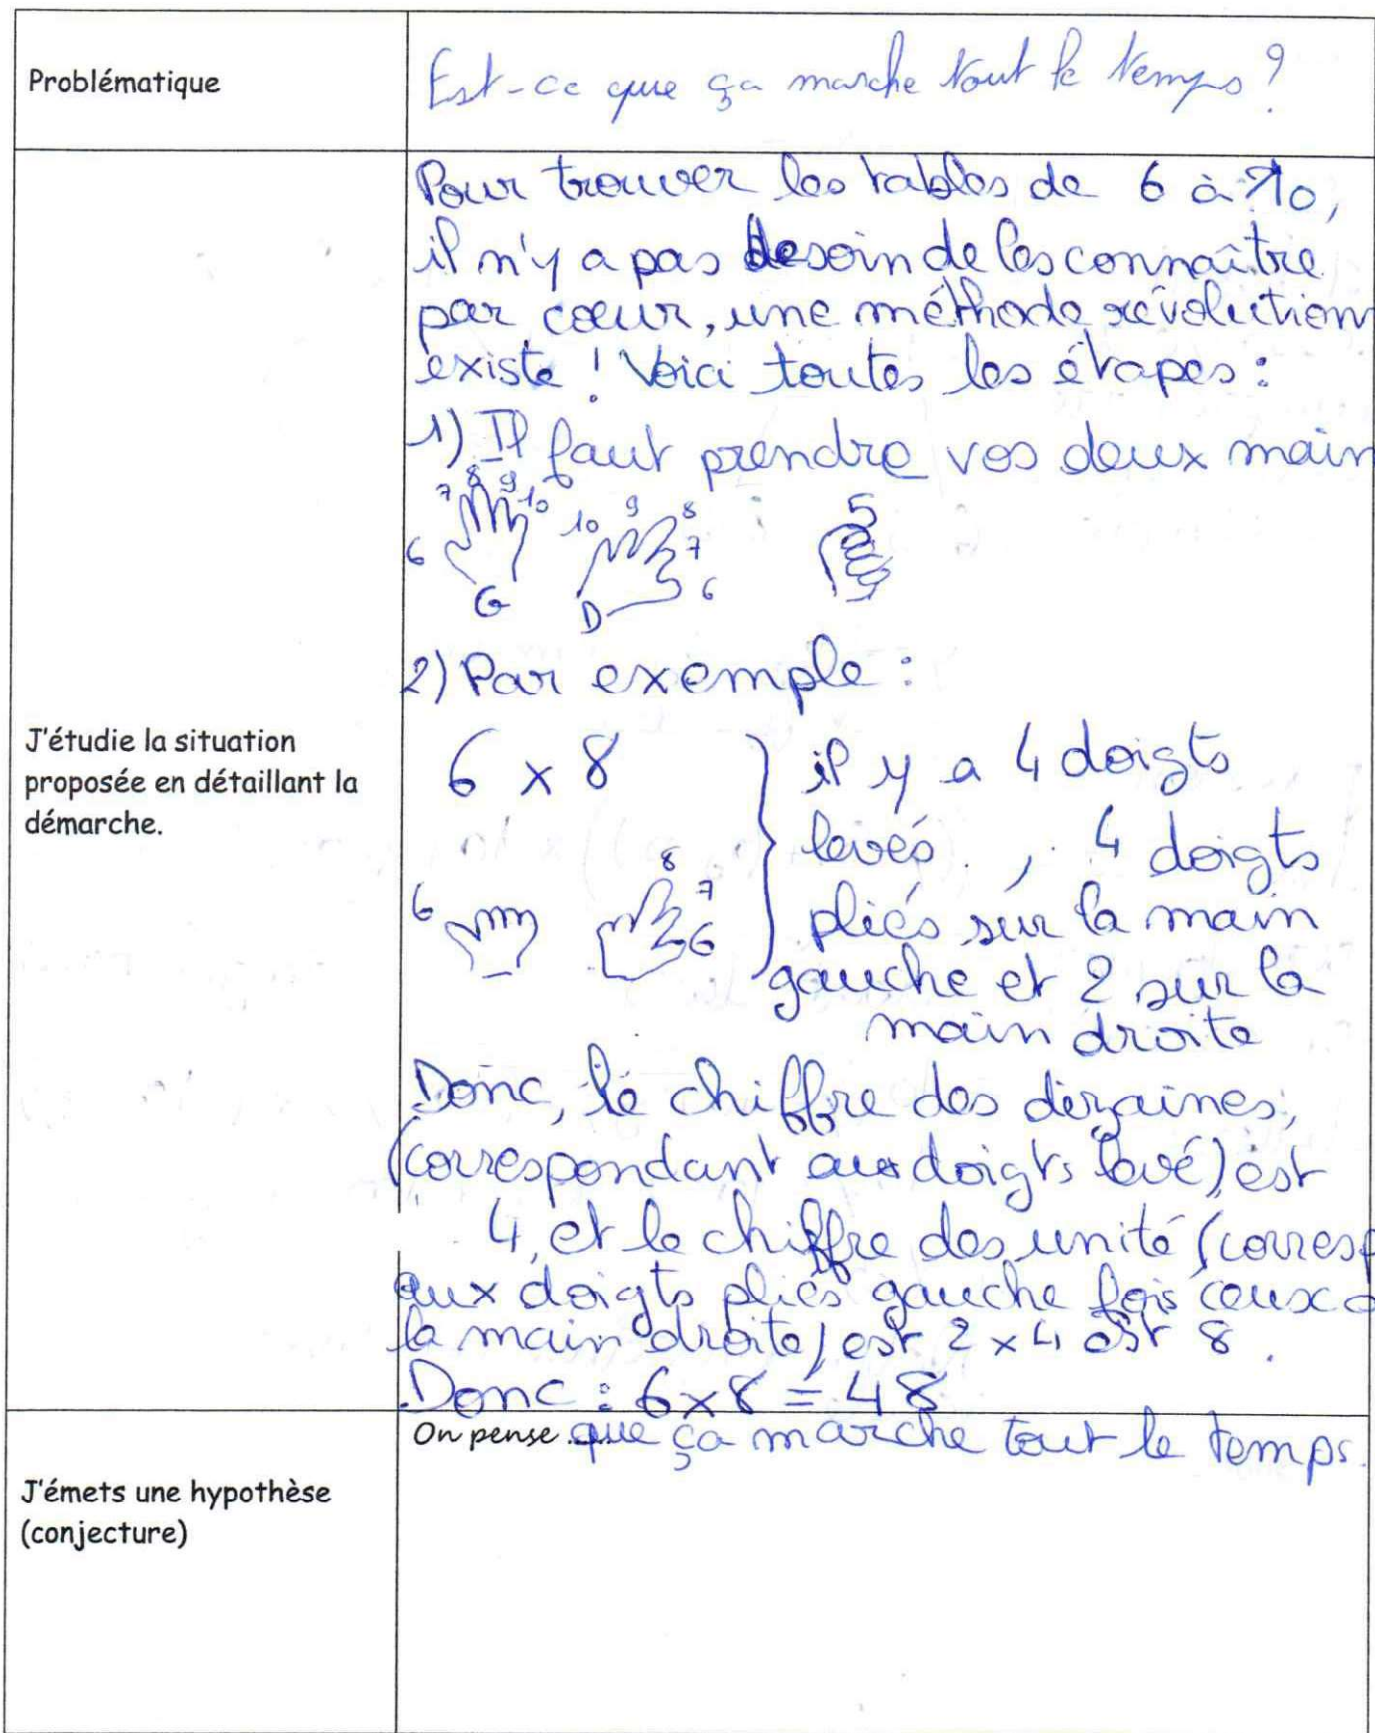 Problématique
Est-ce que ça marche tout le temps ?
J'étudie la situation
proposée en détaillant la
démarche.
Pour trouver les tables de 6 à 10,
il n'y a pas besoin de les connaître
par cœur, une méthode révolution
existe ! Voici toutes les étapes :
1) Il faut prendre vos deux main
7 8 9 10
6
G
10 9 8
7
6
D
5
2) Par exemple :
6 x 8
il y a 4 doigts
levés , 4 doigts
pliés sur la main
gauche et 2 sur la
main droite
6
8
7
6
Donc, le chiffre des dizaines,
(correspondant aux doigts levé) est
4, et le chiffre des unité (corresp
aux doigts pliés gauche fois ceux d
la main droite) est 2 x 4 est 8.
Donc : 6x8 = 48
J'émets une hypothèse
(conjecture)
On pense ... que ça marche tout le temps.